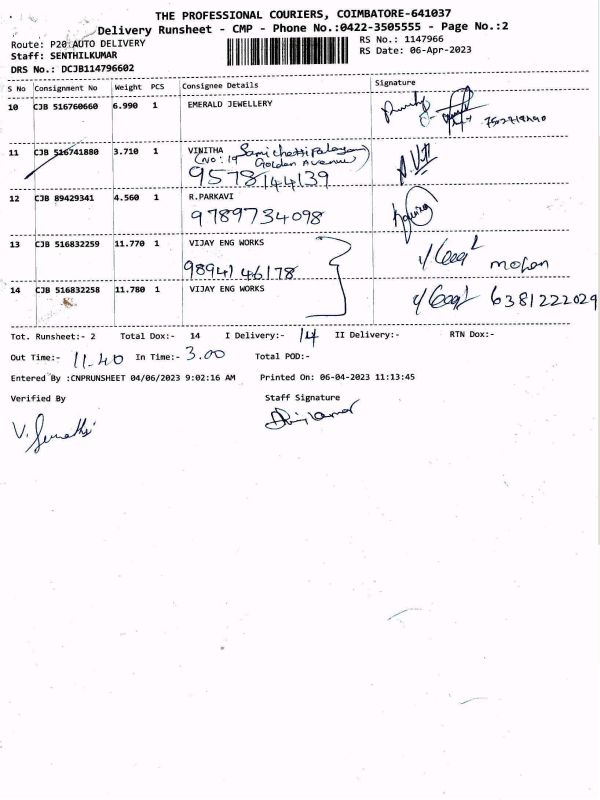 THE PROFESSIONAL COURIERS, COIMBATORE-641037
Delivery Runsheet - CMP - Phone No.:0422-3505555 - Page No.:2
Route: P20 AUTO DELIVERY
RS No.: 1147966
Staff: SENTHILKUMAR
RS Date: 06-Apr-2023
DRS No.: DCJB114796602
S No Consignment No Weight PCS Consignee Details Signature
10 CJB 516760660 6.990 1 EMERALD JEWELLERY
11 CJB 516741880 3.710 1 VINITHA Samichettipalayam
(No: 19 Golden Avenue)
9578144139
12 CJB 89429341 4.560 1 R.PARKAVI
9789734098
13 CJB 516832259 11.770 1 VIJAY ENG WORKS
9894146178 mohan
14 CJB 516832258 11.780 1 VIJAY ENG WORKS 6381222029
Tot. Runsheet:- 2 Total Dox:- 14 I Delivery:- 14 II Delivery:- RTN Dox:-
Out Time:- 11.40 In Time:- 3.00 Total POD:-
Entered By :CNPRUNSHEET 04/06/2023 9:02:16 AM Printed On: 06-04-2023 11:13:45
Verified By Staff Signature